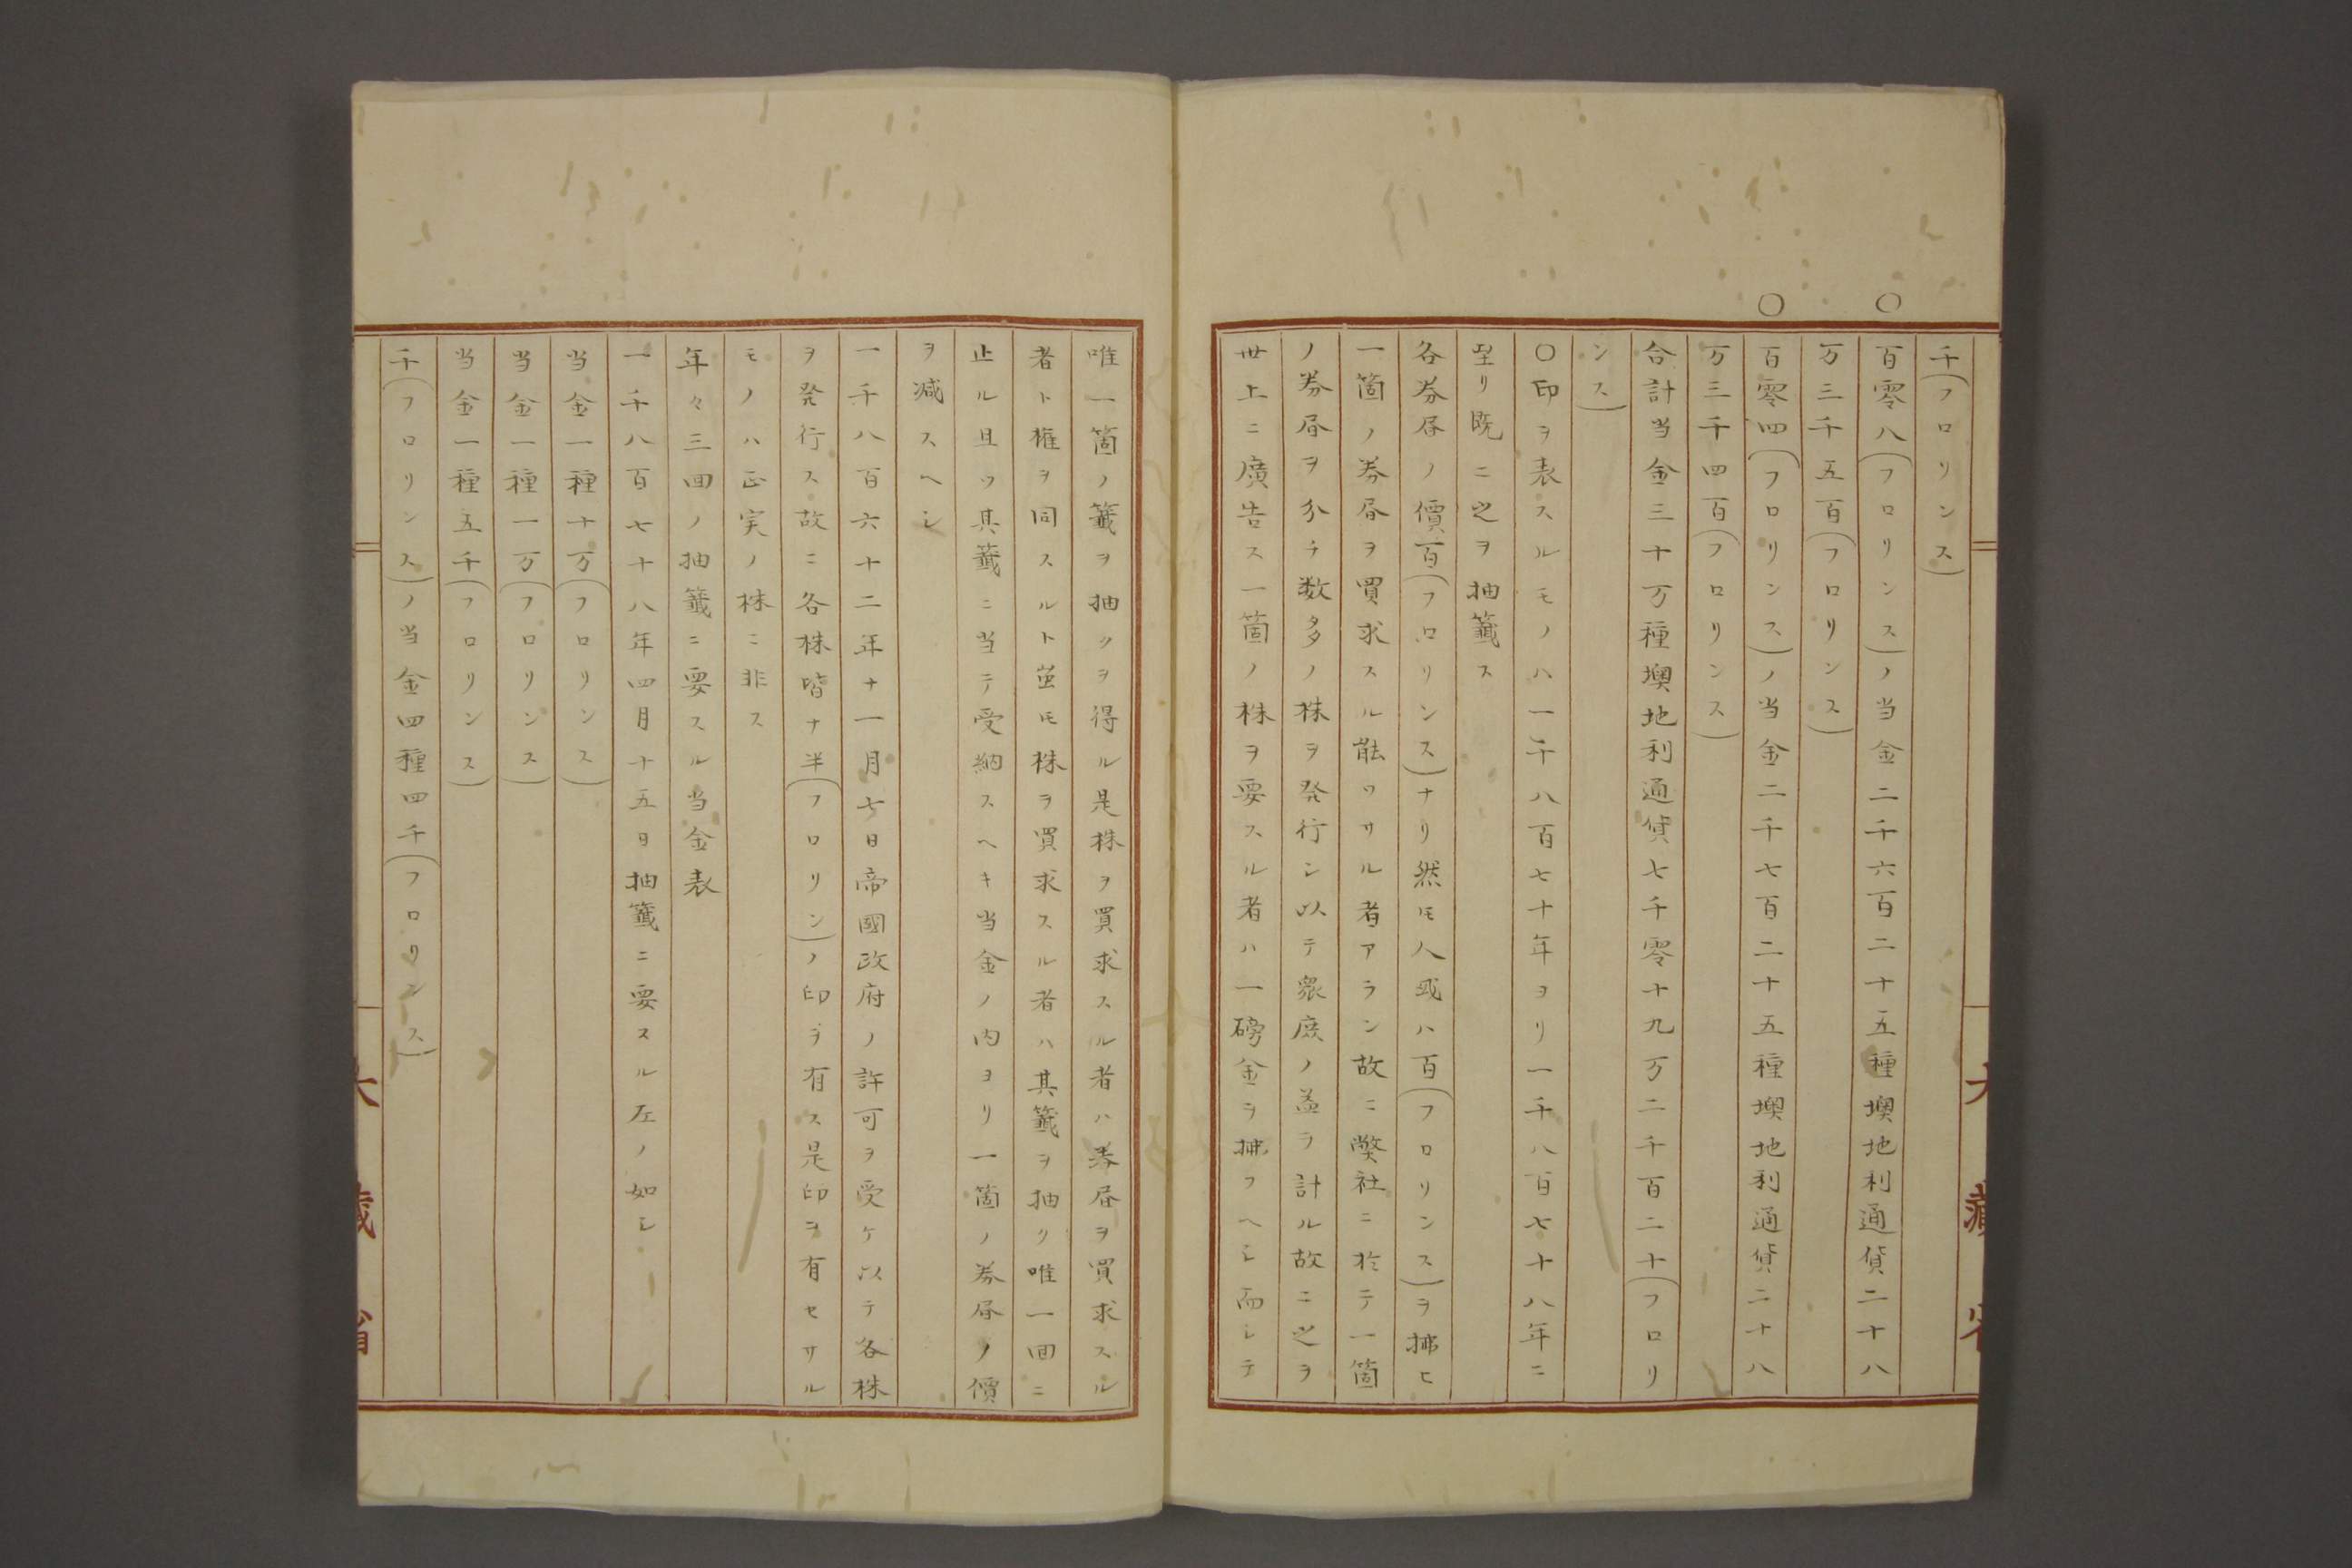 千(フロリンス)
〇百零八(フロリンス)ノ当金二千六百二十五種墺地利通貨二十八
万三千五百(フロリンス)
〇百零四(フロリンス)ノ当金二千七百二十五種墺地利通貨二十八
万三千四百(フロリンス)
合計当金三十万種墺地利通貨七千零十九万二千百二十(フロリ
ンス)
〇印ヲ表スルモノハ一千八百七十年ヨリ一千八百七十八年ニ
至リ既ニ之ヲ抽籤ス
各券㞐ノ價百(フロリンス)ナリ然モ人或ハ百(フロリンス)ヲ拂ヒ
一箇ノ券㞐ヲ買求スル能ワサル者アラン故ニ弊社ニ於テ一箇
ノ券㞐ヲ分チ数多ノ株ヲ発行シ以テ衆庶ノ益ヲ計ル故ニ之ヲ
世上ニ廣告ス一箇ノ株ヲ要スル者ハ一磅金ヲ拂フヘシ而シテ
唯一箇ノ籤ヲ抽クヲ得ル是株ヲ買求スル者ハ券㞐ヲ買求スル
者ト権ヲ同スルト虽モ株ヲ買求スル者ハ其籤ヲ抽リ唯一回ニ
止ル且ツ其籤ニ当テ受納スヘキ当金ノ内ヨリ一箇ノ券㞐ノ價
ヲ減スヘシ
一千八百六十二年十一月七日帝國政府ノ許可ヲ受ケ以テ各株
ヲ発行ス故ニ各株皆ナ半(フロリン)ノ印ヲ有ス是印ヲ有セサル
モノハ正実ノ株ニ非ス
年々三回ノ抽籤ニ要スル当金表
一千八百七十八年四月十五日抽籤ニ要スル左ノ如シ
当金一種十万(フロリンス)
当金一種一万(フロリンス)
当金一種五千(フロリンス)
千(フロリンス)ノ当金四種四千(フロリンス)
大藏省